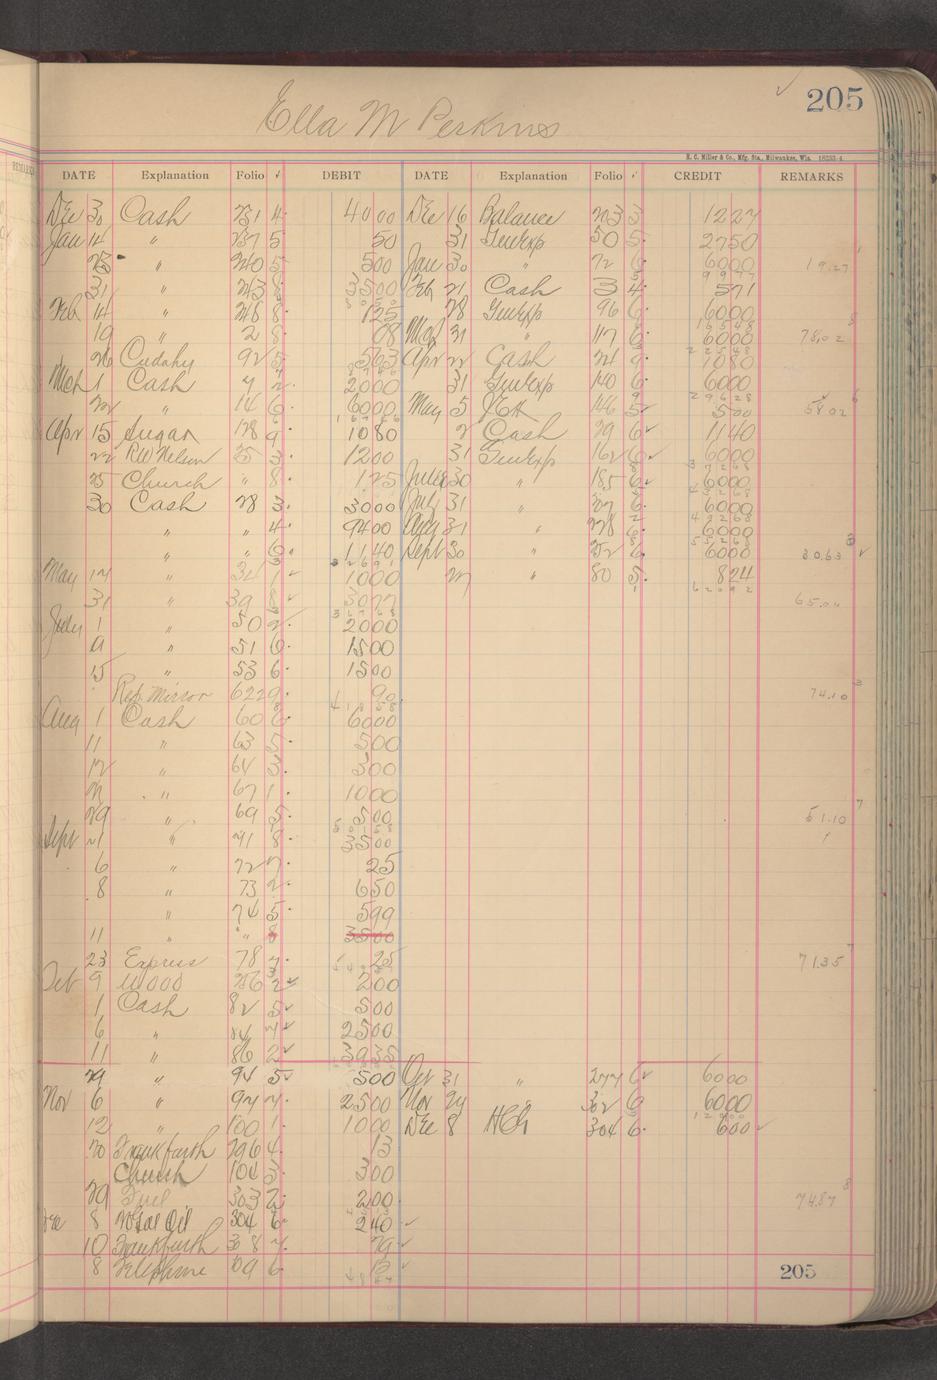 205
Ella M Perkins
H. C. Miller & Co., Mfg. Sta., Milwaukee, Wis. 18233-4
DATE Explanation Folio ✓ DEBIT DATE Explanation Folio ✓ CREDIT REMARKS
Dec 30 Cash 231 4 4000 Dec 16 Balance 203 3 1227
Jan 14 " 237 5 50 31 GenExp 50 5 2750
" 240 5 500 Jan 30 " 72 6 6000 19.27
31 " 243 8 3500 Feb 21 Cash 3 4 571
Feb 14 " 248 8 125 28 GenExp 96 6 6000
19 " 2 8 08 Mch 31 " 117 6 6000 78.02
26 Cudahy 92 5 563 Apr 22 Cash 24 9 1080
Mch 1 Cash 7 2 2000 31 GenExp 140 6 6000
22 " 14 6 6000 May 5 146 5 500 58.02
Apr 15 Sugar 128 9 1080 2 Cash 29 6 1140
22 RW Nelson 25 3 1200 31 GenExp 162 6 6000
25 Church " 8 125 June 30 " 185 6 6000
30 Cash 28 3 3000 July 31 " 207 6 6000
" " 4 9400 Aug 31 " 228 6 6000
" " 6 1140 Sept 30 " 252 6 6000 30.63
May 14 " 34 1 1000 27 " 80 5 824
31 " 39 8 3077 65.00
July 1 " 50 2 2000
9 " 51 6 1500
15 " 53 6 1500
Rep. Mirror 622 9 90 74.10
Aug 1 Cash 60 6 6000
11 " 63 5 500
12 " 64 3 300
" 67 1 1000
29 " 69 5 500 51.10
Sept 1 " 71 8 3500
6 " 72 7 25
8 " 73 2 650
" 74 5 599
11 " " 8 3500
23 Express 78 7 25 71.35
Oct 9 Wood 256 2 200
1 Cash 82 5 500
6 " 84 7 2500
11 " 86 2 3935
29 " 94 5 500 Oct 31 " 277 6 6000
Nov 6 " 97 7 2500 Nov 29 " 302 6 6000
12 " 100 1 1000 Dec 8 304 6 600
20 Frankfurth 296 4 13
Church 104 3 300
29 Fuel 303 2 200 74.87
Dec 8 Oil 304 6 240
10 Frankfurth 308 7 79
8 Telephone 09 6 15
205